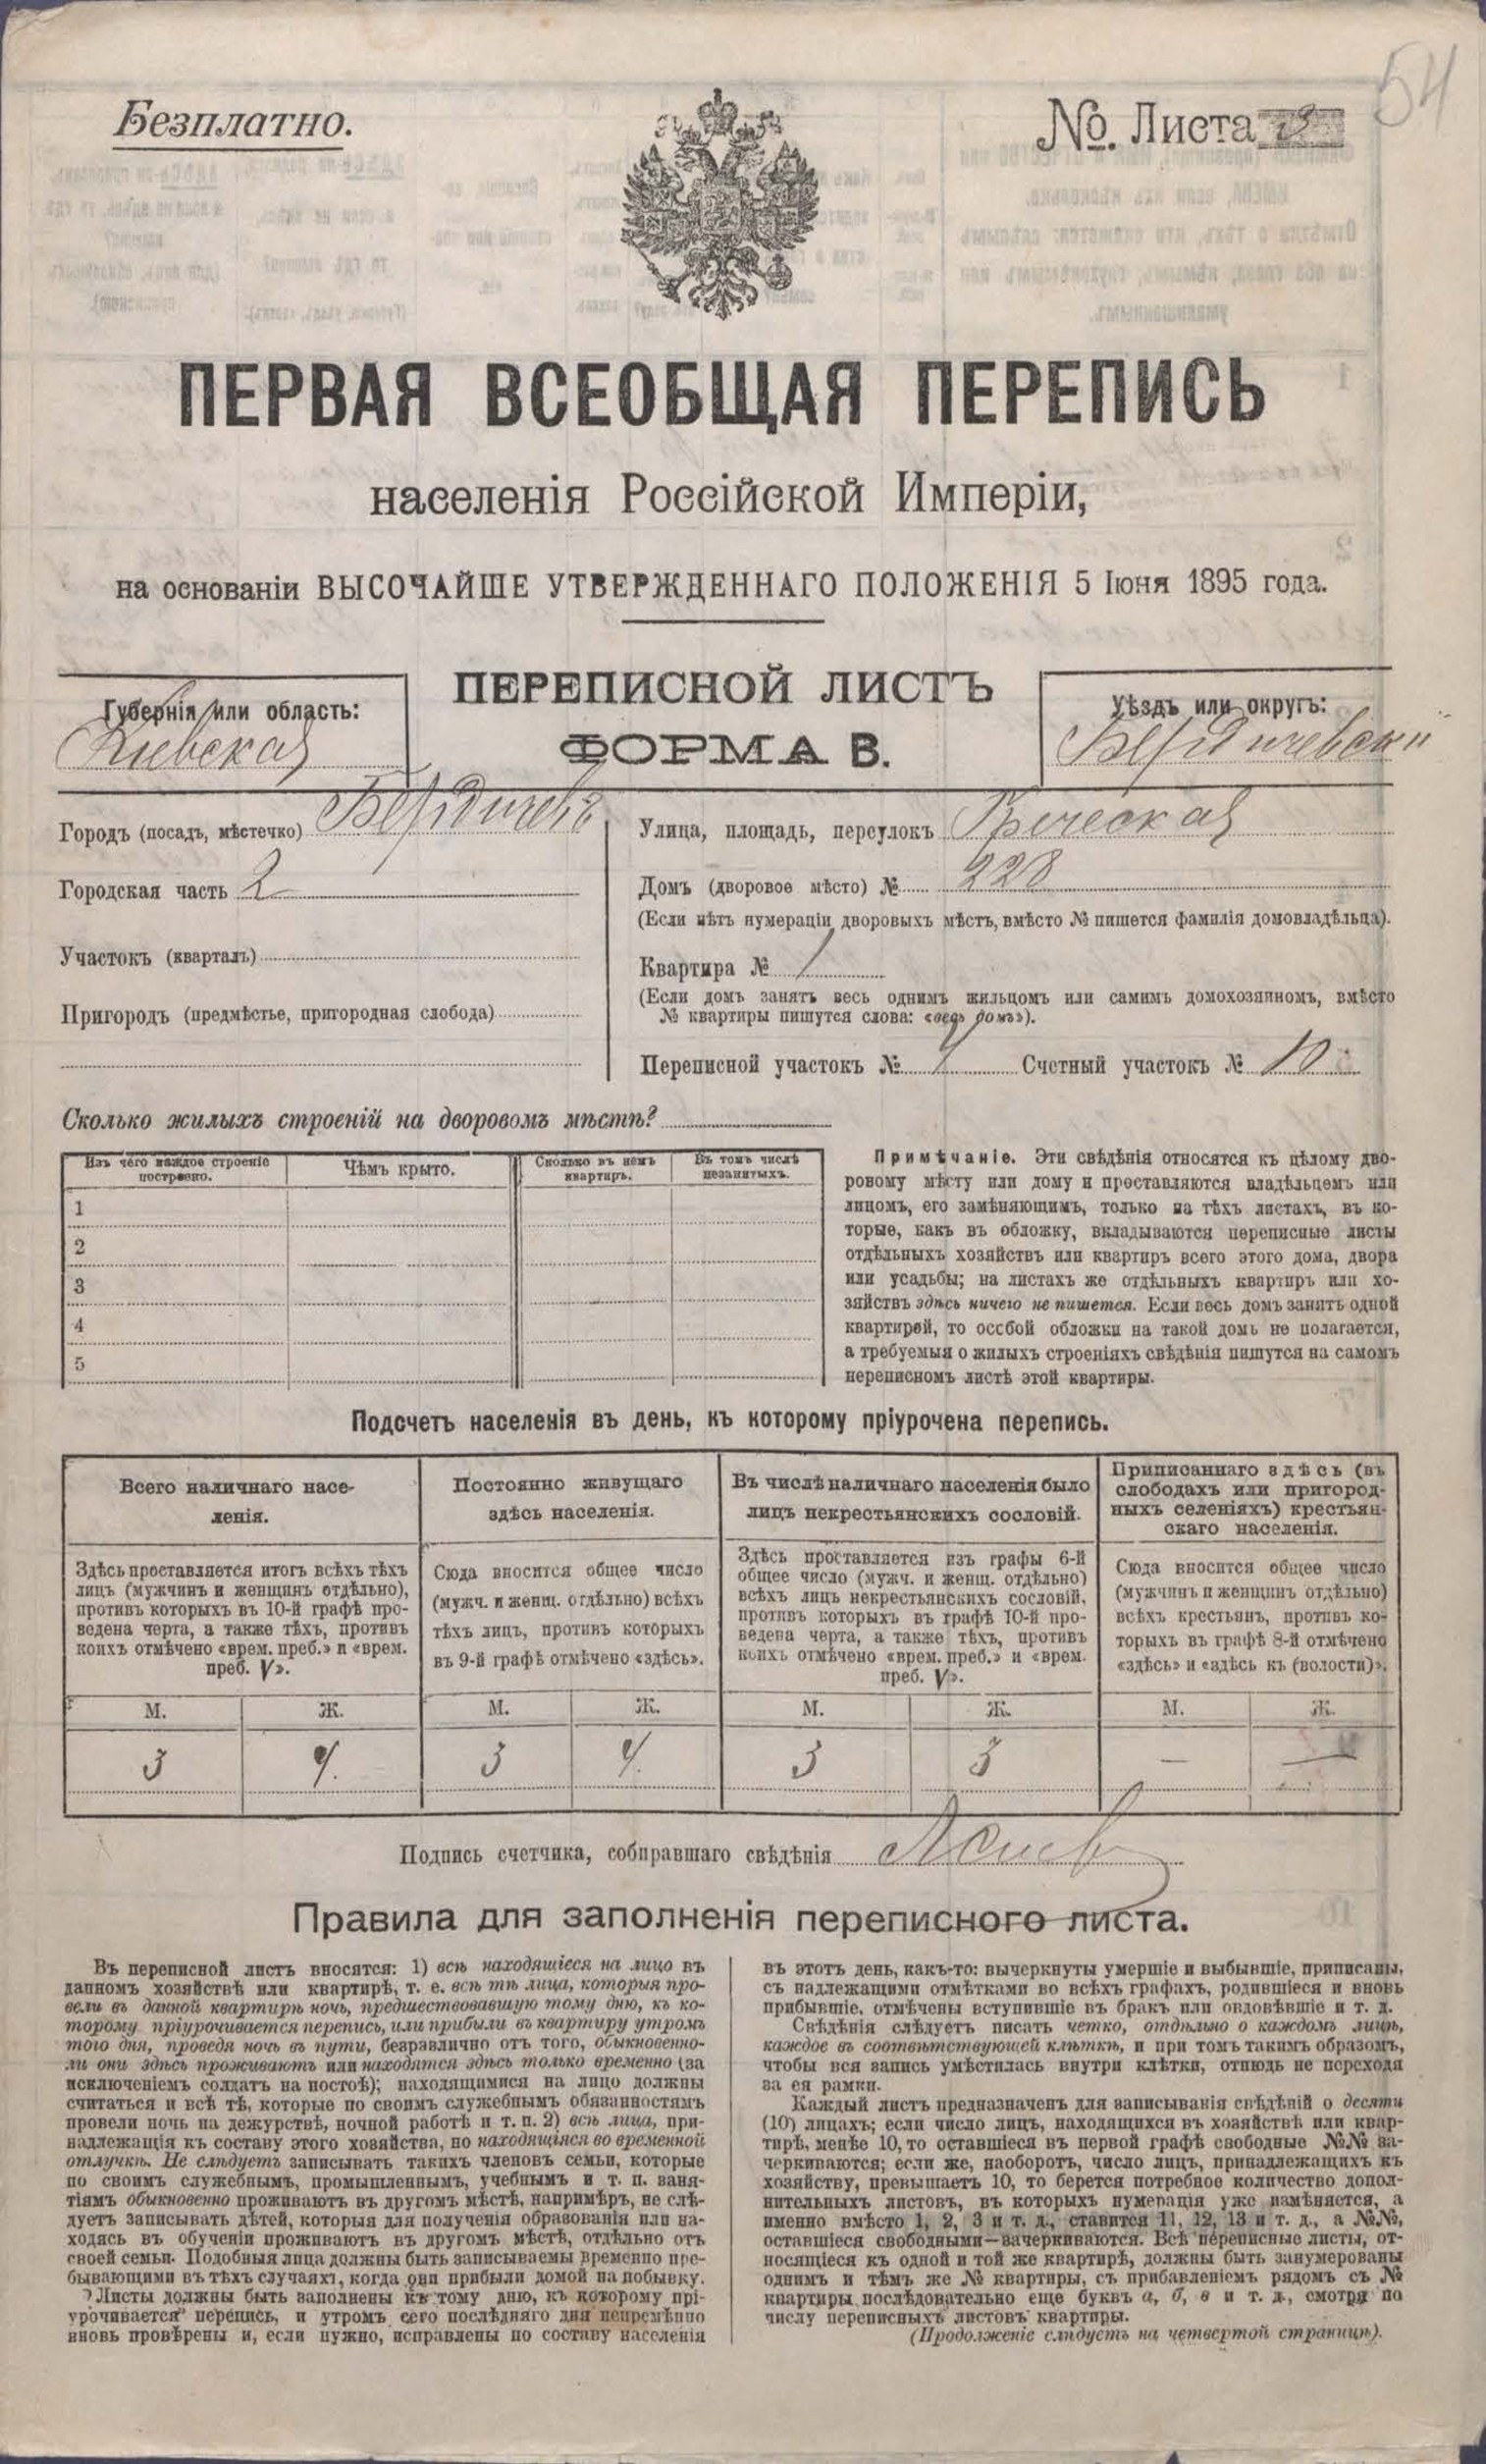 54
Безплатно.
№. Листа
ПЕРВАЯ ВСЕОБЩАЯ ПЕРЕПИСЬ
населенія Россійской Имперіи,
на основаніи ВЫСОЧАЙШЕ УТВЕРЖДЕННАГО ПОЛОЖЕНІЯ 5 Іюня 1895 года.
ПЕРЕПИСНОЙ ЛИСТЪ
ФОРМА В.
Губернія или область:
Киевская
Уѣздъ или округъ:
Бердичевский
Городъ (посадъ, мѣстечко) Бердичевъ
Городская часть 2
Участокъ (кварталъ)
Пригородъ (предмѣстье, пригородная слобода)
Улица, площадь, переулокъ Греческая
Домъ (дворовое мѣсто) № 228
(Если нѣтъ нумераціи дворовыхъ мѣстъ, вмѣсто № пишется фамилія домовладѣльца).
Квартира № 1
(Если домъ занятъ весь однимъ жильцомъ или самимъ домохозяиномъ, вмѣсто
№ квартиры пишутся слова: «весь домъ»).
Переписной участокъ № Счетный участокъ № 10
Сколько жилыхъ строеній на дворовомъ мѣстѣ?
Изъ чего каждое строеніе построено.
Чѣмъ крыто.
Сколько въ немъ квартиръ.
Въ томъ числѣ незанятыхъ.
1
2
3
4
5
Примѣчаніе. Эти свѣдѣнія относятся къ цѣлому дво-
ровому мѣсту или дому и проставляются владѣльцемъ или
лицомъ, его замѣняющимъ, только на тѣхъ листахъ, въ ко-
торые, какъ въ обложку, вкладываются переписные листы
отдѣльныхъ хозяйствъ или квартиръ всего этого дома, двора
или усадьбы; на листахъ же отдѣльныхъ квартиръ или хо-
зяйствъ здѣсь ничего не пишется. Если весь домъ занятъ одной
квартирой, то особой обложки на такой домъ не полагается,
а требуемыя о жилыхъ строеніяхъ свѣдѣнія пишутся на самомъ
переписномъ листѣ этой квартиры.
Подсчетъ населенія въ день, къ которому пріурочена перепись.
Всего наличнаго насе-
ленія.
Постоянно живущаго
здѣсь населенія.
Въ числѣ наличнаго населенія было
лицъ некрестьянскихъ сословій.
Приписаннаго здѣсь (въ
слободахъ или пригород-
ныхъ селеніяхъ) крестьян-
скаго населенія.
Здѣсь проставляется итогъ всѣхъ тѣхъ
лицъ (мужчинъ и женщинъ отдѣльно),
противъ которыхъ въ 10-й графѣ про-
ведена черта, а также тѣхъ, противъ
коихъ отмѣчено «врем. преб.» и «врем.
преб. V».
Сюда вносится общее число
(мужч. и женщ. отдѣльно) всѣхъ
тѣхъ лицъ, противъ которыхъ
въ 9-й графѣ отмѣчено «здѣсь».
Здѣсь проставляется изъ графы 6-й
общее число (мужч. и женщ. отдѣльно)
всѣхъ лицъ некрестьянскихъ сословій,
противъ которыхъ въ графѣ 10-й про-
ведена черта, а также тѣхъ, противъ
коихъ отмѣчено «врем. преб.» и «врем.
преб. V».
Сюда вносится общее число
(мужчинъ и женщинъ отдѣльно)
всѣхъ крестьянъ, противъ ко-
торыхъ въ графѣ 8-й отмѣчено
«здѣсь» и «здѣсь къ (волости)».
М. Ж. М. Ж. М. Ж. М. Ж.
3 4. 3 4. 3 3 — —
Подпись счетчика, собиравшаго свѣдѣнія
Правила для заполненія переписного листа.
Въ переписной листъ вносятся: 1) всѣ находящіеся на лицо въ
данномъ хозяйствѣ или квартирѣ, т. е. всѣ тѣ лица, которыя про-
вели въ данной квартирѣ ночь, предшествовавшую тому дню, къ ко-
торому пріурочивается перепись, или прибыли въ квартиру утромъ
того дня, проведя ночь въ пути, безразлично отъ того, обыкновенно-
ли они здѣсь проживаютъ или находятся здѣсь только временно (за
исключеніемъ солдатъ на постоѣ); находящимися на лицо должны
считаться и всѣ тѣ, которые по своимъ служебнымъ обязанностямъ
провели ночь на дежурствѣ, ночной работѣ и т. п. 2) всѣ лица, при-
надлежащія къ составу этого хозяйства, но находящіяся во временной
отлучкѣ. Не слѣдуетъ записывать такихъ членовъ семьи, которые
по своимъ служебнымъ, промышленнымъ, учебнымъ и т. п. заня-
тіямъ обыкновенно проживаютъ въ другомъ мѣстѣ, напримѣръ, не слѣ-
дуетъ записывать дѣтей, которыя для полученія образованія или на-
ходясь въ обученіи проживаютъ въ другомъ мѣстѣ, отдѣльно отъ
своей семьи. Подобныя лица должны быть записываемы временно пре-
бывающими въ тѣхъ случаяхъ, когда они прибыли домой на побывку.
Листы должны быть заполнены къ тому дню, къ которому прі-
урочивается перепись, и утромъ сего послѣдняго дня непремѣнно
вновь провѣрены и, если нужно, исправлены по составу населенія
въ этотъ день, какъ-то: вычеркнуты умершіе и выбывшіе, приписаны,
съ надлежащими отмѣтками во всѣхъ графахъ, родившіеся и вновь
прибывшіе, отмѣчены вступившіе въ бракъ или овдовѣвшіе и т. д.
Свѣдѣнія слѣдуетъ писать четко, отдѣльно о каждомъ лицѣ,
каждое въ соотвѣтствующей клѣткѣ, и при томъ такимъ образомъ,
чтобы вся запись умѣстилась внутри клѣтки, отнюдь не переходя
за ея рамки.
Каждый листъ предназначенъ для записыванія свѣдѣній о десяти
(10) лицахъ; если число лицъ, находящихся въ хозяйствѣ или квар-
тирѣ, менѣе 10, то оставшіеся въ первой графѣ свободные №№ за-
черкиваются; если же, наоборотъ, число лицъ, принадлежащихъ къ
хозяйству, превышаетъ 10, то берется потребное количество допол-
нительныхъ листовъ, въ которыхъ нумерація уже измѣняется, а
именно вмѣсто 1, 2, 3 и т. д., ставится 11, 12, 13 и т. д., а №№,
оставшіеся свободными—зачеркиваются. Всѣ переписные листы, от-
носящіеся къ одной и той же квартирѣ, должны быть занумерованы
однимъ и тѣмъ же № квартиры, съ прибавленіемъ рядомъ съ №
квартиры послѣдовательно еще буквъ а, б, в и т. д., смотря по
числу переписныхъ листовъ квартиры.
(Продолженіе слѣдуетъ на четвертой страницѣ).